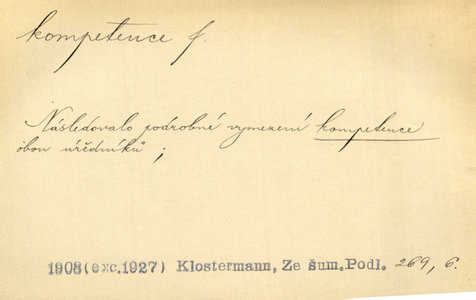 kompetence f.
Následovalo podrobné vymezení kompetence
obou úředníků ;
1908(exc.1927) Klostermann, Ze šum.Podl. 269, 6.